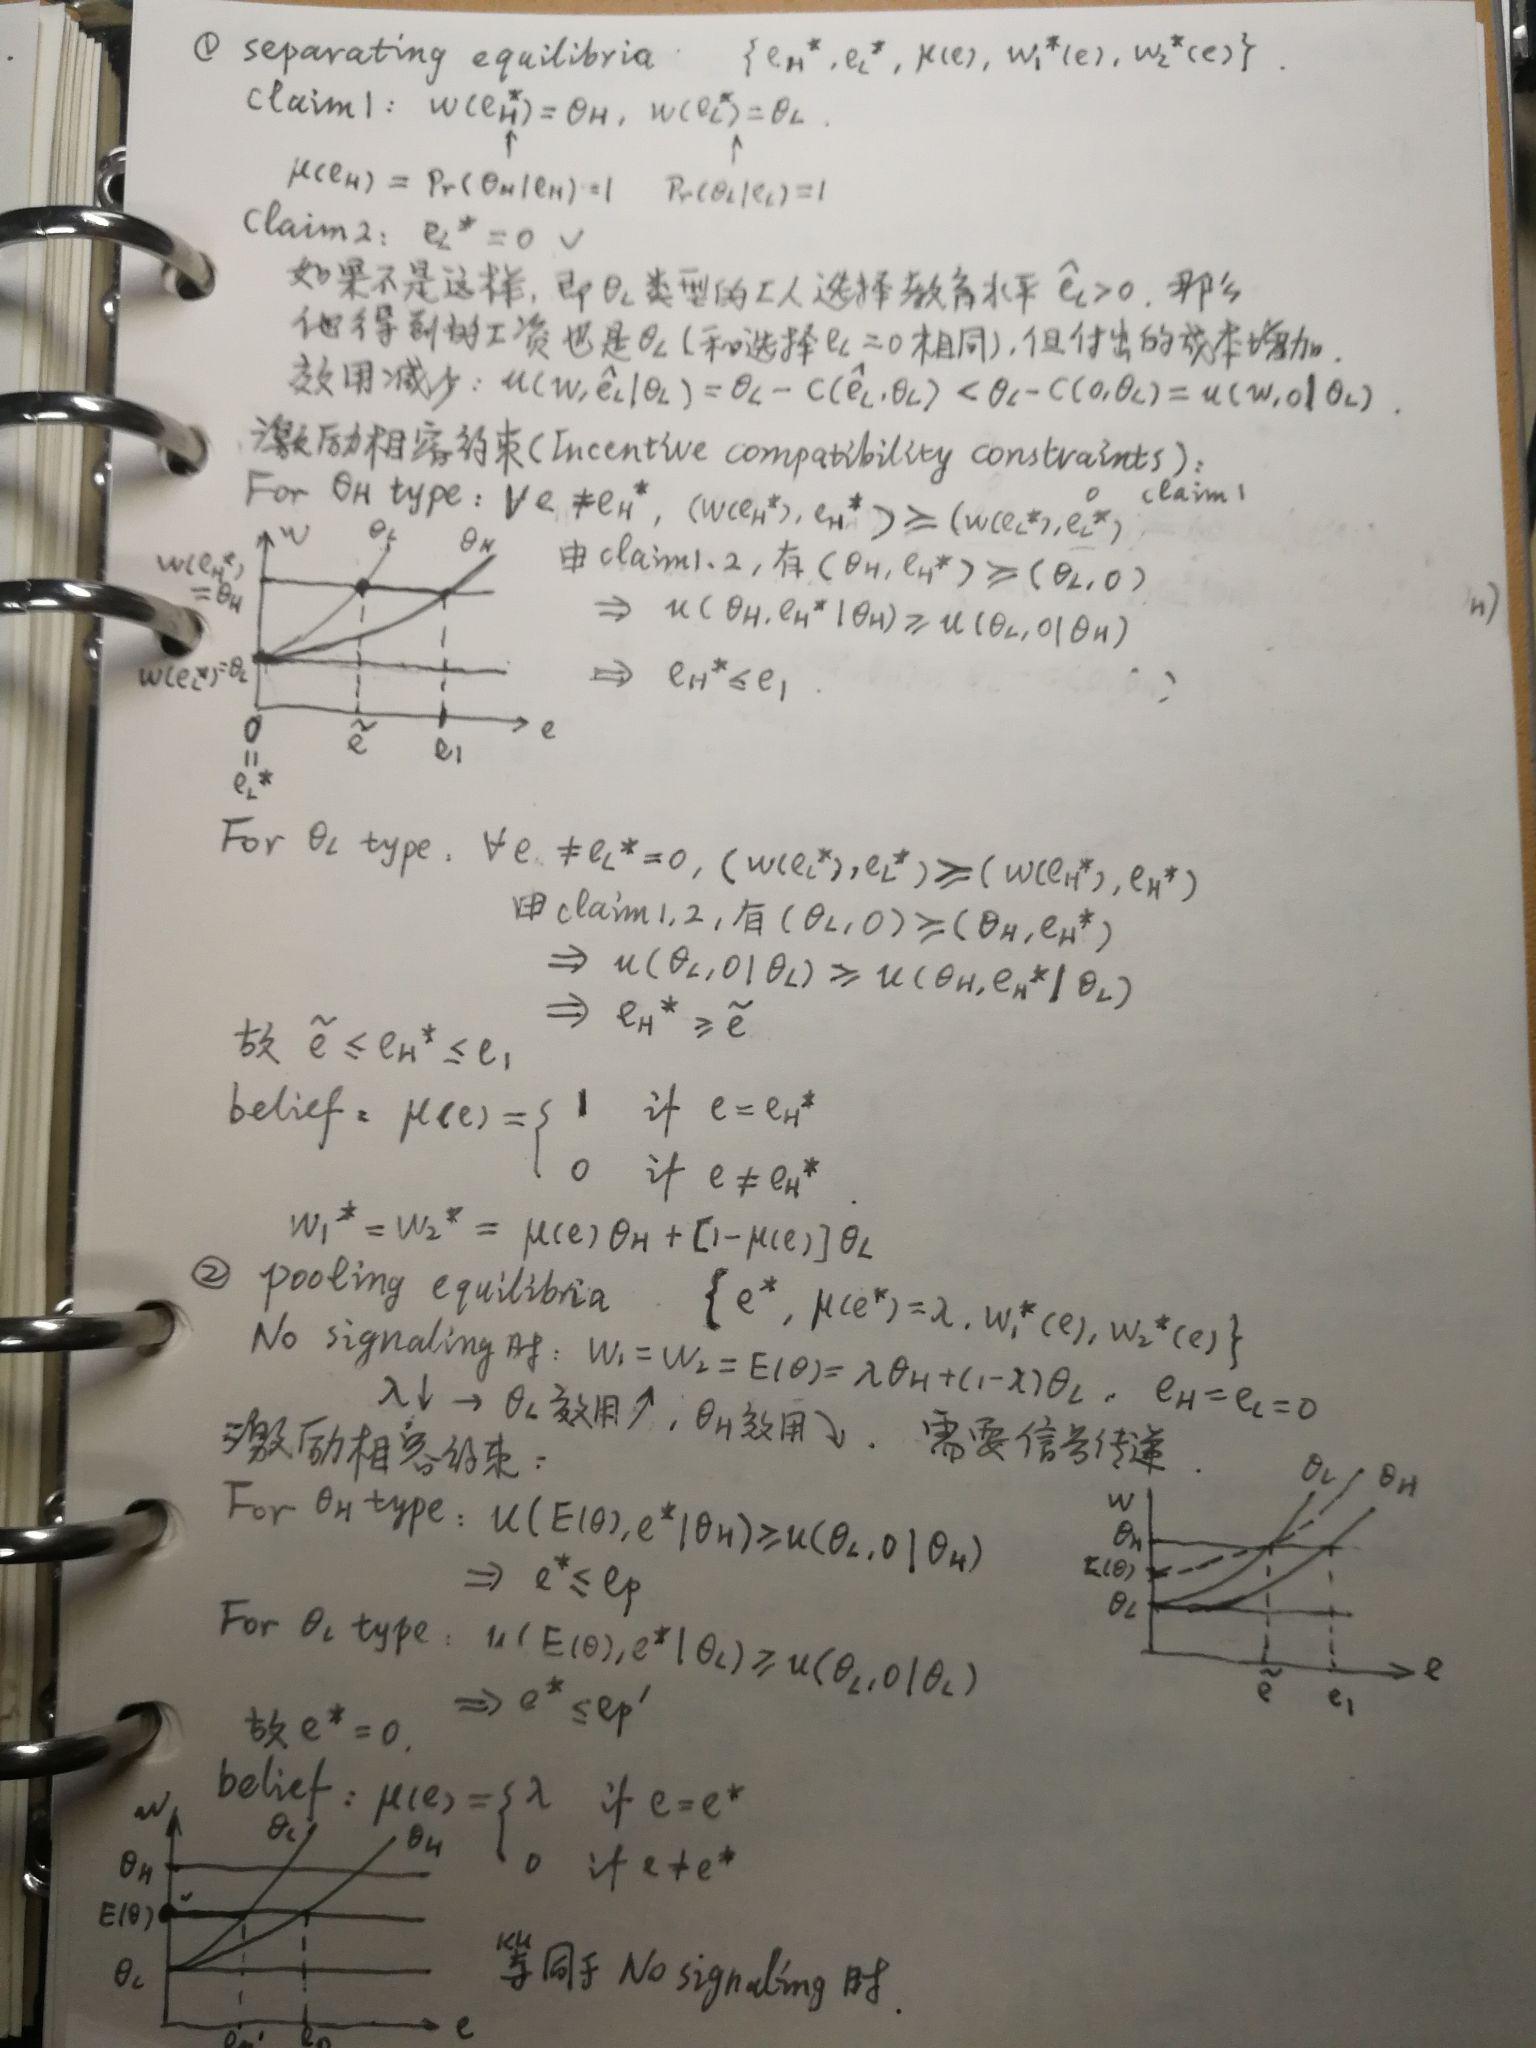 ① separating equilibria {eH*, eL*, μ(e), w1*(e), w2*(e)}.
Claim1: w(eH*)=θH, w(eL*)=θL.
↑ ↑
μ(eH) = Pr(θH|eH)=1 Pr(θL|eL)=1
Claim2: eL*=0 ✓
如果不是这样, 即θL类型的工人选择教育水平 êL>0. 那么
他得到的工资也是θL(和选择eL=0相同), 但付出的成本增加.
效用减少: u(w,êL|θL)=θL-C(êL,θL)<θL-C(0,θL)=u(w,0|θL).
激励相容约束(Incentive compatibility constraints):
For θH type: ∀e≠eH*, (w(eH*),eH*)≥(w(eL*),eL*)
0 claim1
由claim1.2, 有(θH,eH*)≥(θL,0)
⇒ u(θH,eH*|θH)≥u(θL,0|θH)
⇒ eH*≤e1.
w θL θH
w(eH*)
=θH
w(eL*)=θL
0 ẽ e1 e
=
eL*
H)
For θL type. ∀e≠eL*=0, (w(eL*),eL*)≥(w(eH*),eH*)
由claim1,2,有(θL,0)≥(θH,eH*)
⇒ u(θL,0|θL)≥u(θH,eH*|θL)
⇒ eH*≥ẽ
故 ẽ≤eH*≤e1
belief: μ(e)={ 1 if e=eH*
0 if e≠eH*.
w1*=w2*=μ(e)θH+[1-μ(e)]θL
② pooling equilibria {e*, μ(e*)=λ, w1*(e), w2*(e)}
No signaling时: w1=w2=E(θ)=λθH+(1-λ)θL, eH=eL=0
λ↓ → θL效用↑, θH效用↘. 需要信号传递.
激励相容约束:
For θH type: u(E(θ),e*|θH)≥u(θL,0|θH)
⇒ e*≤ep
For θL type: u(E(θ),e*|θL)≥u(θL,0|θL)
⇒ e*≤ep'
故e*=0.
θL θH
w
θH
E(θ)
θL
ẽ e1 e
belief: μ(e)={ λ if e=e*
0 if e≠e*
w θL θH
θH
E(θ)
θL
ep' ep e
等同于 No signaling 时.